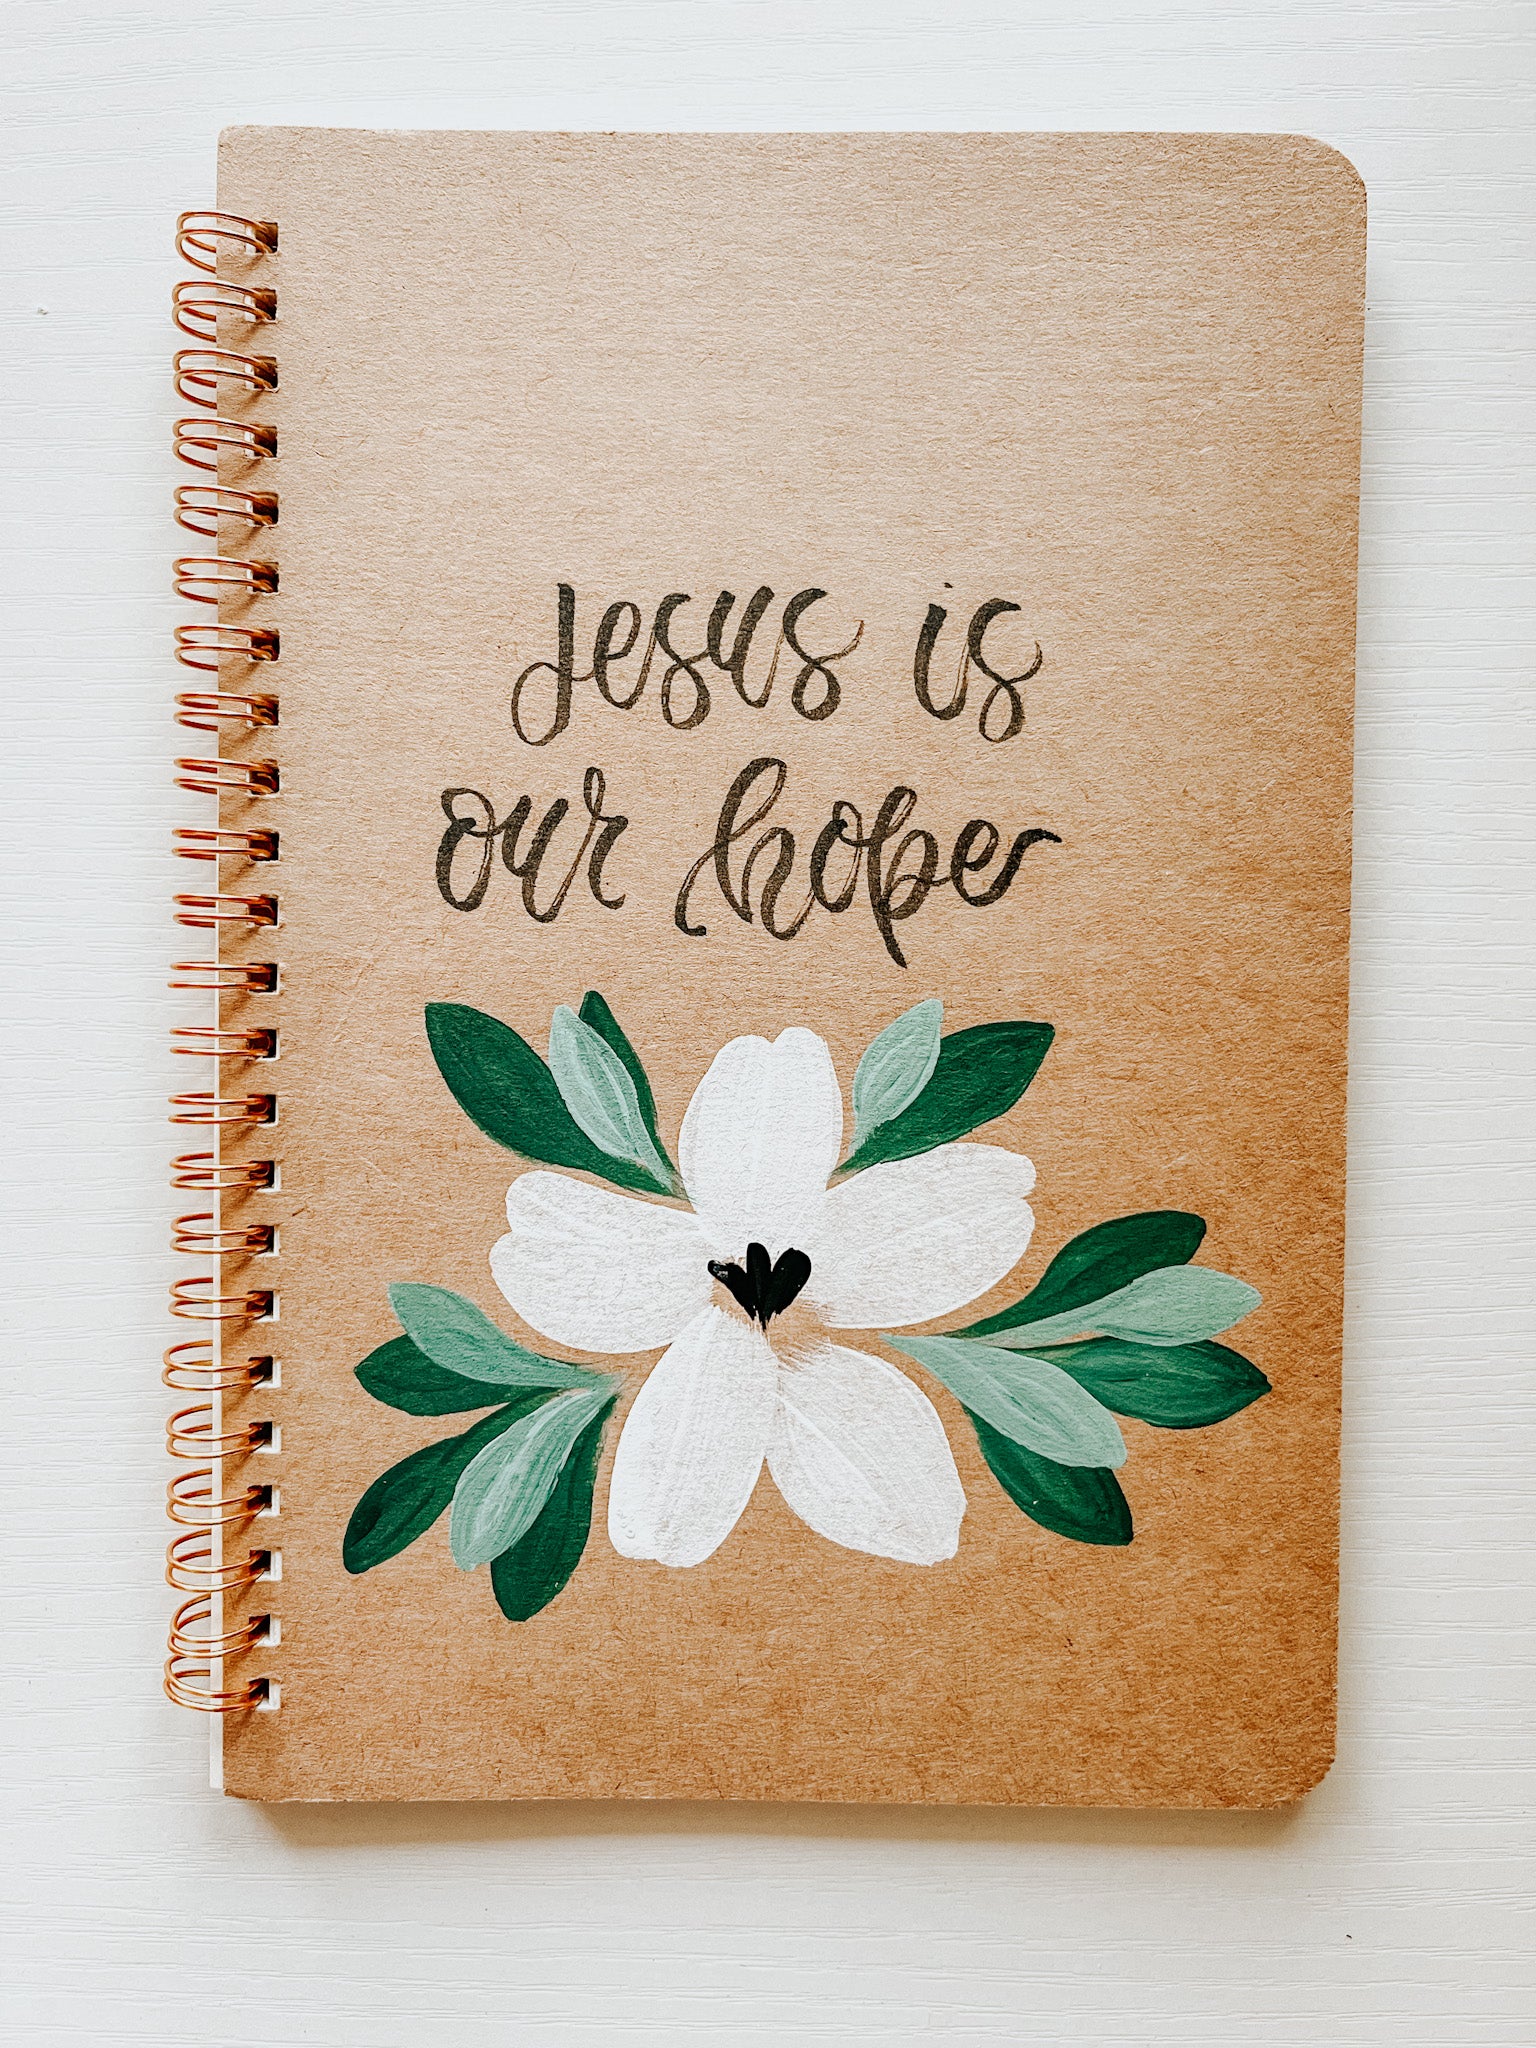 Jesus is
our hope